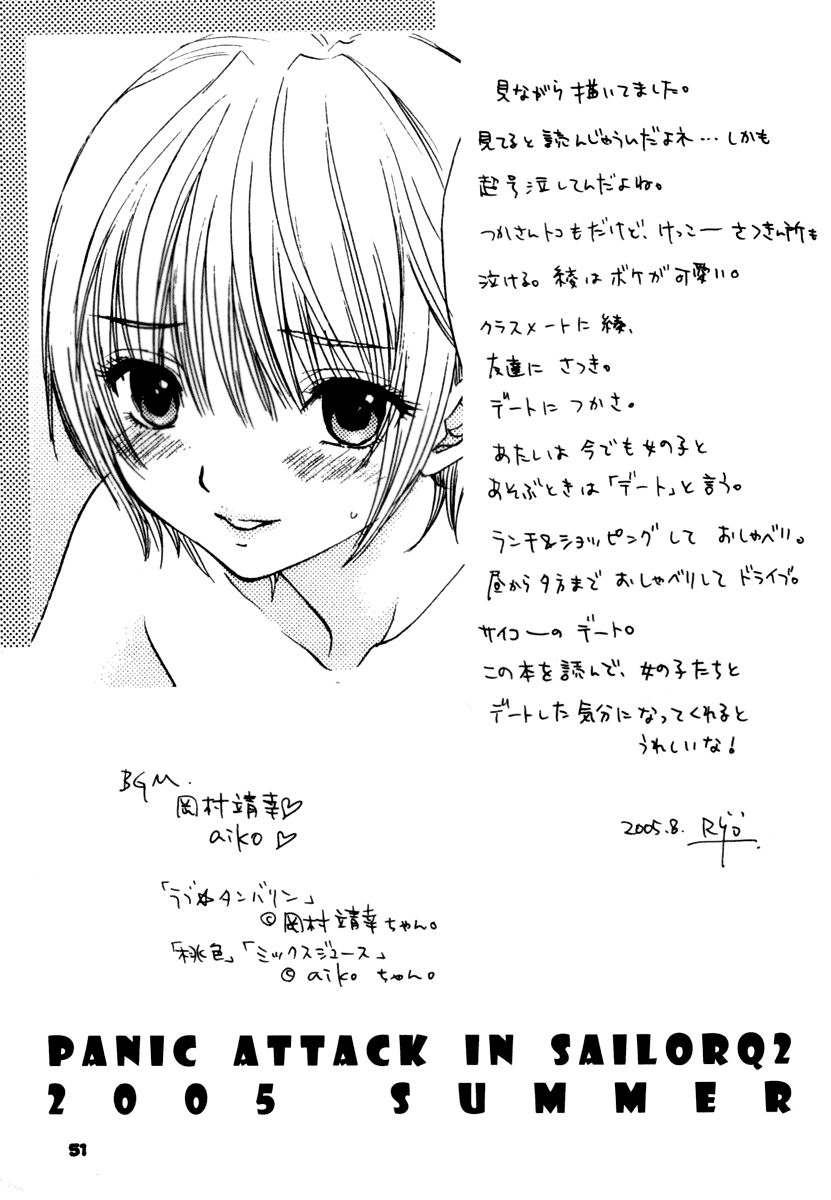 見ながら描いてました。
見てると読んじゃうんだよネ…しかも
超号泣してんだよね。
つかさんトコもだけど、けっこー さつきん所も
泣ける。綾はボケが可愛い。
クラスメートに綾、
友達に さつき。
デートに つかさ。
あたいは 今でも女の子と
あそぶときは「デート」と言う。
ランチ&ショッピングして おしゃべり。
昼から夕方まで おしゃべりして ドライブ。
サイコーの デート。
この本を読んで、女の子たちと
デートした気分になってくれると
うれしいな!
2005.8. Ryo
BGM.
岡村靖幸♡
aiko♡
「ラブ☆タンバリン」
©岡村靖幸ちゃん。
「桃色」「ミックスジュース」
© aiko ちゃん。
PANIC ATTACK IN SAILORQ2
2005 SUMMER
51